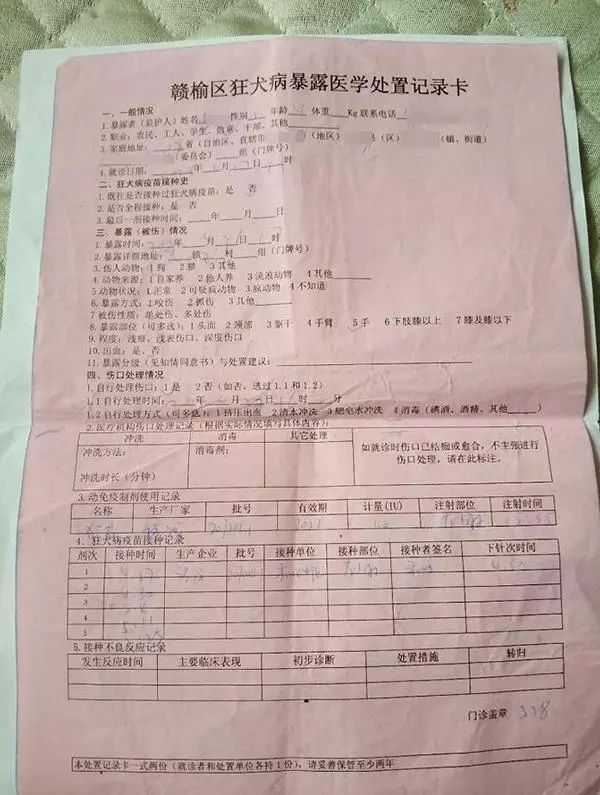 赣榆区狂犬病暴露医学处置记录卡
一、一般情况
1.暴露者(监护人)姓名 性别 年龄 体重 Kg 联系电话
2.职业:农民、工人、学生、散童、干部、其他
3.家庭地址: 省(自治区、直辖市 (地区) 县(区) (镇、街道)
(委员会) 组(门牌号)
4.就诊日期: 年 月 日 时
二、狂犬病疫苗接种史
1.既往是否接种过狂犬病疫苗:是 否
2.是否全程接种:是 否
3.最后一剂接种时间: 年 月 日
三、暴露(被伤)情况
1.暴露时间: 年 月 日 时
2.暴露详细地址: 镇 村 组(门牌号)
3.伤人动物:1狗 2猫 3其他
4.动物来源:1自家养 2他人养 3流浪动物 4其他
5动物状况:1正常 2可疑疯动物 3疯动物 4不知道
6.暴露方式:1咬伤 2抓伤 3其他
7被伤性质:单处伤、多处伤
8.暴露部位(可多选):1头面 2颈部 3躯干 4手臂 5手 6下肢膝以上 7膝及膝以下
9.程度:浅痕、浅表伤口、深度伤口
10.出血:是、否
11.暴露分级(见知情同意书)与处置建议:
四、伤口处理情况
1.自行处理伤口:1是 2否(如否,选过1.1和1.2)
1.1自行处理时间: 年 月 日 时 分
1.2自行处理方式(可多选):1挤压出血 2清水冲洗 3肥皂水冲洗 4消毒(碘酒、酒精、其他
2.医疗机构伤口处理记录(根据实际情况填写具体内容):
冲洗 消毒 其它处理
冲洗方法: 消毒剂: 如就诊时伤口已结痂或愈合,不主张进行
伤口处理,请在此标注。
冲洗时长(分钟)
3.动免疫制剂使用记录
名称 生产厂家 批号 有效期 计量(IU) 注射部位 注射时间
4.狂犬病疫苗接种记录
剂次 接种时间 生产企业 批号 接种单位 接种部位 接种者签名 下针次时间
1 4.30
2 4.30
3
4
5
5.接种不良反应记录
发生反应时间 主要临床表现 初步诊断 处置措施 转归
门诊盖章 338
本处置记录卡一式两份(就诊者和处置单位各持1份),请妥善保管至少两年